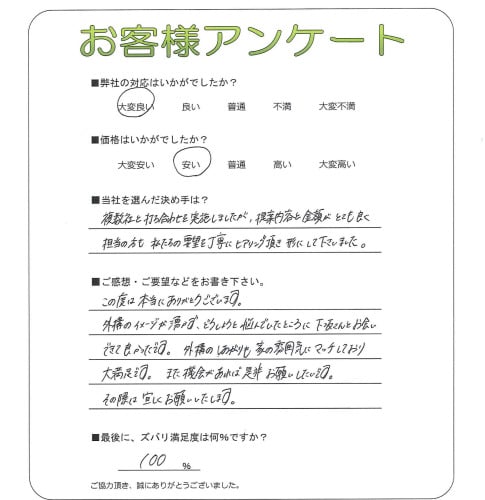 お客様アンケート
■弊社の対応はいかがでしたか？
大変良い 良い 普通 不満 大変不満
■価格はいかがでしたか？
大変安い 安い 普通 高い 大変高い
■当社を選んだ決め手は？
複数社と打ち合わせを実施しましたが、提案内容と金額がとても良く
担当の方も私たちの要望を丁寧にヒアリング頂き形にして下さいました。
■ご感想・ご要望などをお書き下さい。
この度は本当にありがとうございます。
外構のイメージが湧かず、どうしようと悩んでいたところに下坂さんとお会い
できて良かったです。外構のしあがりも家の雰囲気にマッチしており
大満足です。また機会があれば是非お願いしたいです。
その際は宜しくお願いいたします。
■最後に、ズバリ満足度は何％ですか？
100 ％
ご協力頂き、誠にありがとうございました。